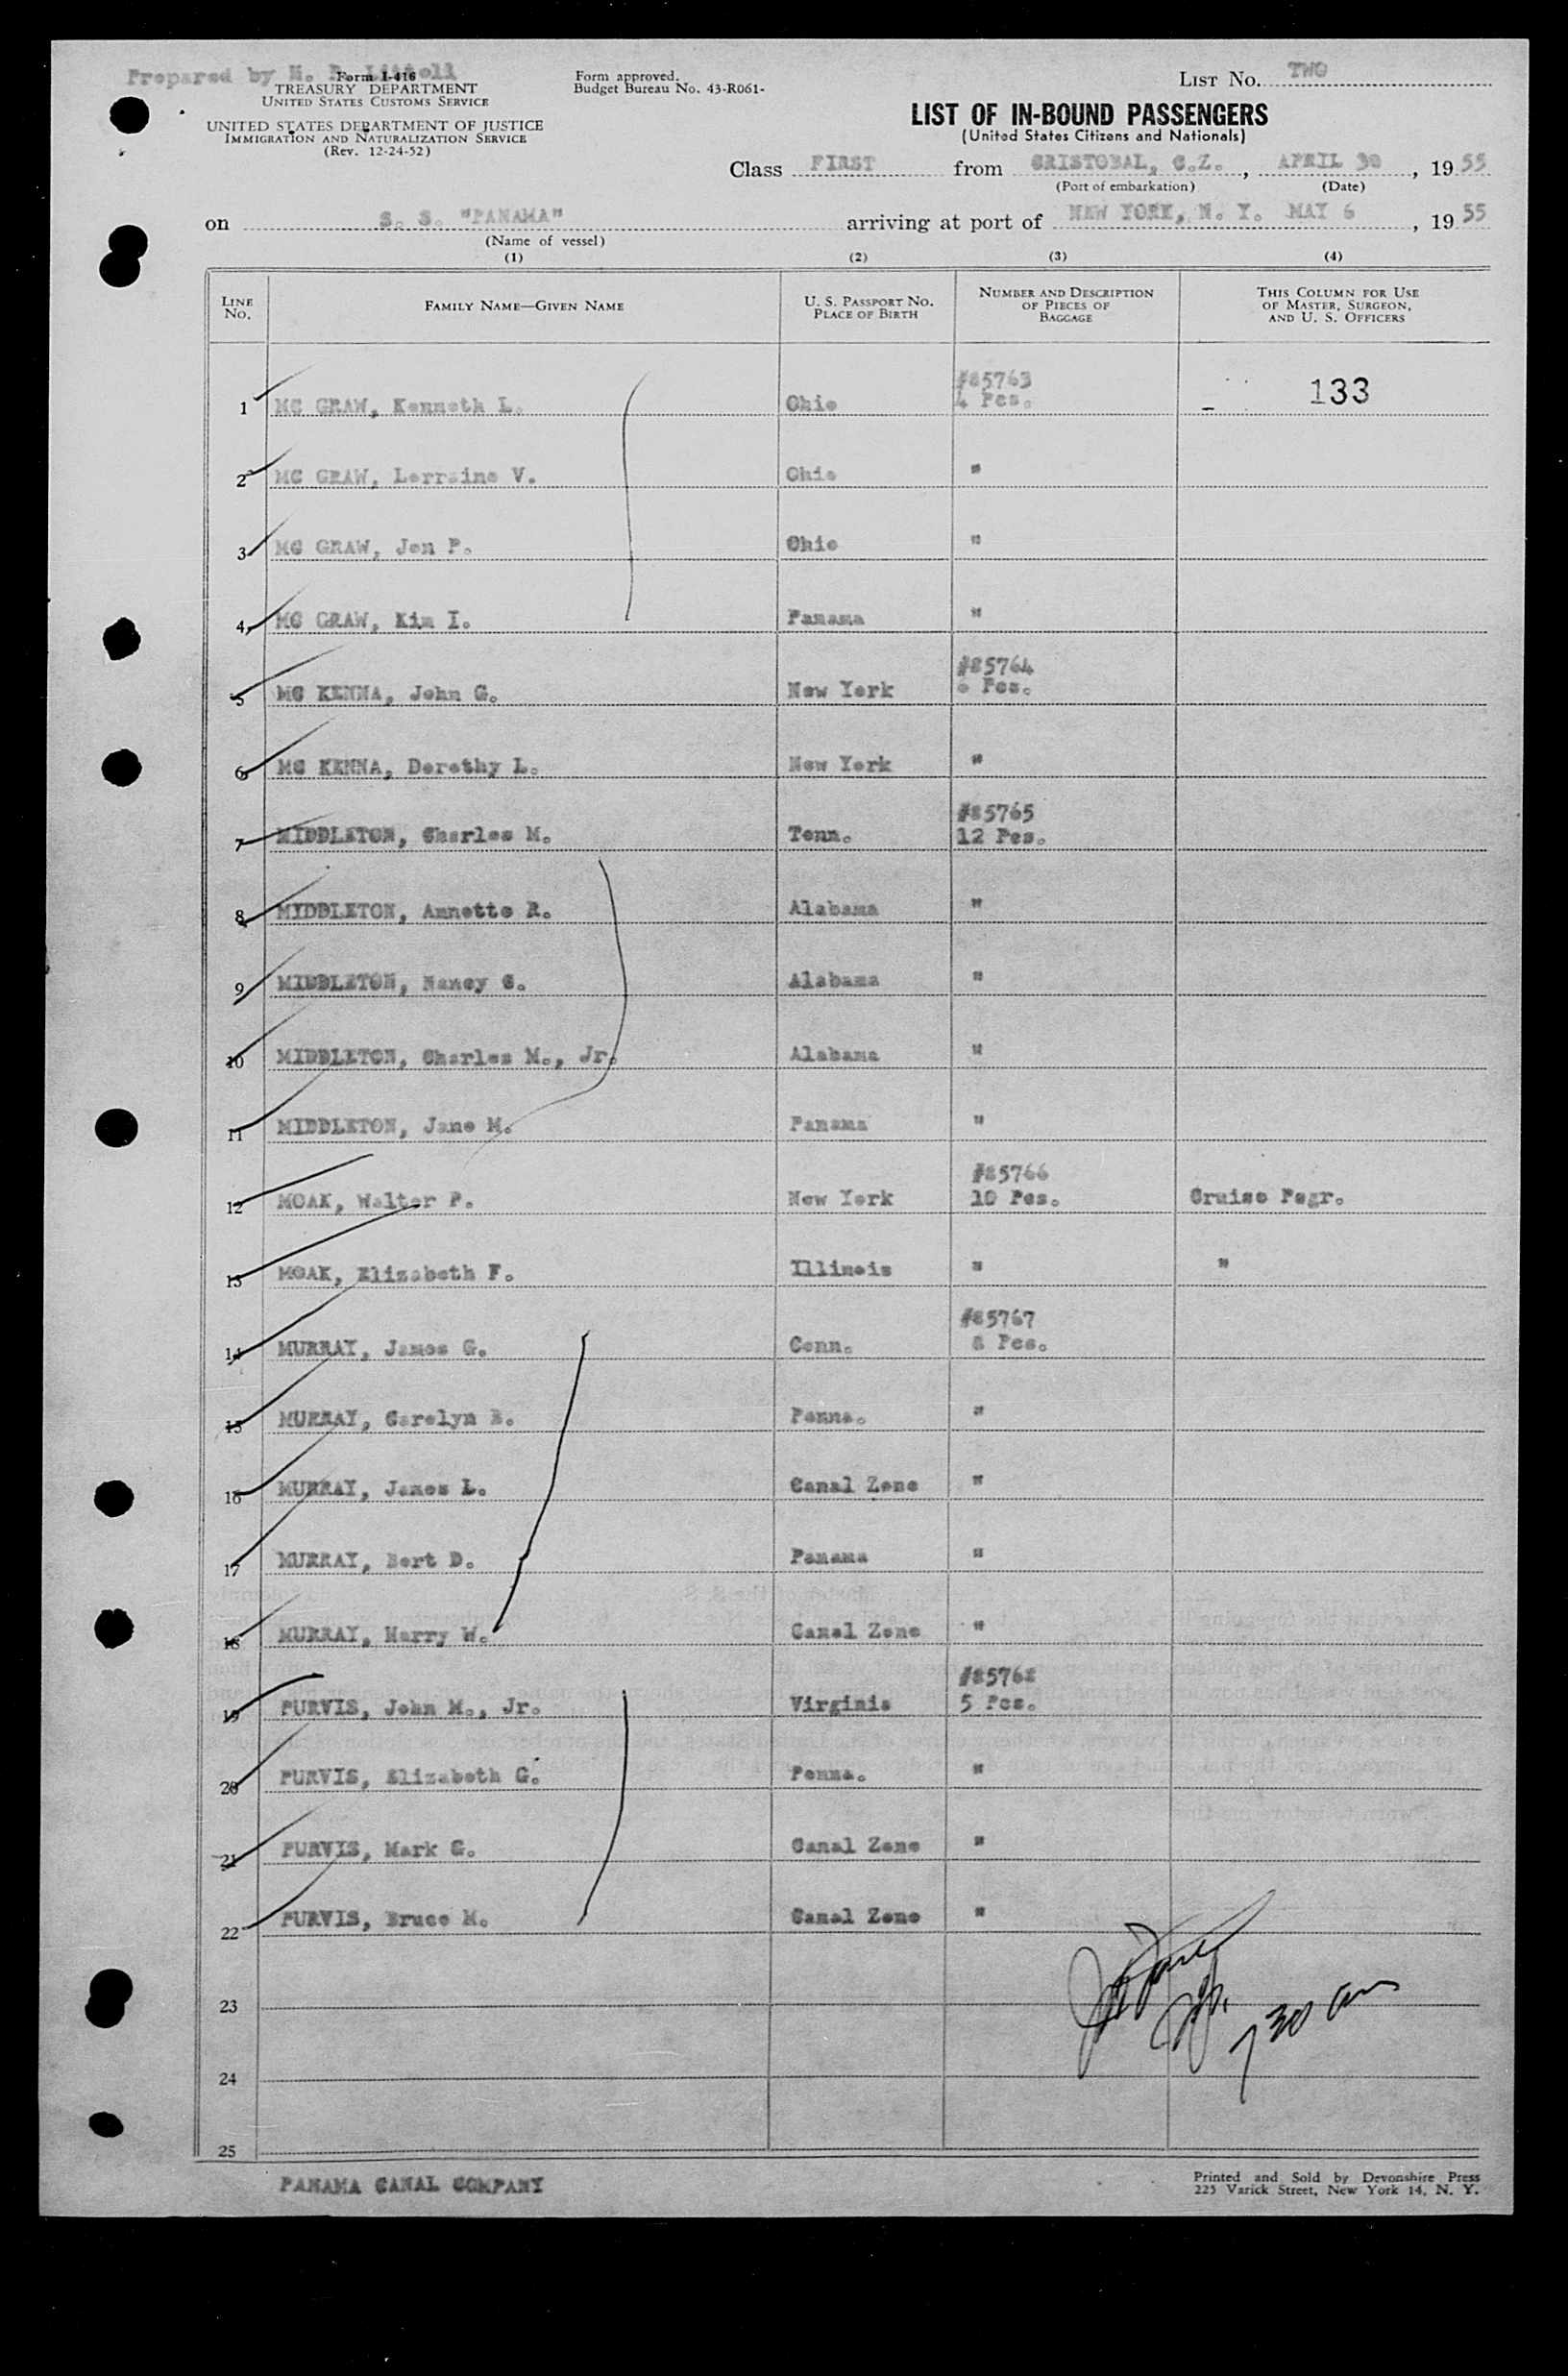 Prepared by H. P. Littell
Form I-416
TREASURY DEPARTMENT
UNITED STATES CUSTOMS SERVICE
UNITED STATES DEPARTMENT OF JUSTICE
IMMIGRATION AND NATURALIZATION SERVICE
(Rev. 12-24-52)
Form approved.
Budget Bureau No. 43-R061-
LIST NO. TWO
LIST OF IN-BOUND PASSENGERS
(United States Citizens and Nationals)
Class FIRST from CRISTOBAL, C.Z., APRIL 30, 1955
(Port of embarkation) (Date)
on S. S. "PANAMA" arriving at port of NEW YORK, N. Y. MAY 6, 1955
(Name of vessel)
(1) (2) (3) (4)
LINE NO. FAMILY NAME—GIVEN NAME U. S. PASSPORT NO. PLACE OF BIRTH NUMBER AND DESCRIPTION OF PIECES OF BAGGAGE THIS COLUMN FOR USE OF MASTER, SURGEON, AND U. S. OFFICERS
1 MC GRAW, Kenneth L. Ohio #85763 4 Pcs. 133
2 MC GRAW, Lorraine V. Ohio "
3 MC GRAW, Jon P. Ohio "
4 MC GRAW, Kim I. Panama "
5 MC KENNA, John G. New York #85764 6 Pcs.
6 MC KENNA, Dorothy L. New York "
7 MIDDLETON, Charles M. Tenn. #85765 12 Pcs.
8 MIDDLETON, Annette R. Alabama "
9 MIDDLETON, Nancy C. Alabama "
10 MIDDLETON, Charles M., Jr. Alabama "
11 MIDDLETON, Jane M. Panama "
12 MOAK, Walter P. New York #85766 10 Pcs. Cruise Psgr.
13 MOAK, Elizabeth F. Illinois " "
14 MURRAY, James G. Conn. #85767 8 Pcs.
15 MURRAY, Carolyn E. Penna. "
16 MURRAY, James L. Canal Zone "
17 MURRAY, Bert D. Panama "
18 MURRAY, Harry W. Canal Zone "
19 PURVIS, John M., Jr. Virginia #85768 5 Pcs.
20 PURVIS, Elizabeth G. Penna. "
21 PURVIS, Mark G. Canal Zone "
22 PURVIS, Bruce M. Canal Zone "
23
24
25
7 30 am
PANAMA CANAL COMPANY
Printed and Sold by Devonshire Press
225 Varick Street, New York 14, N. Y.